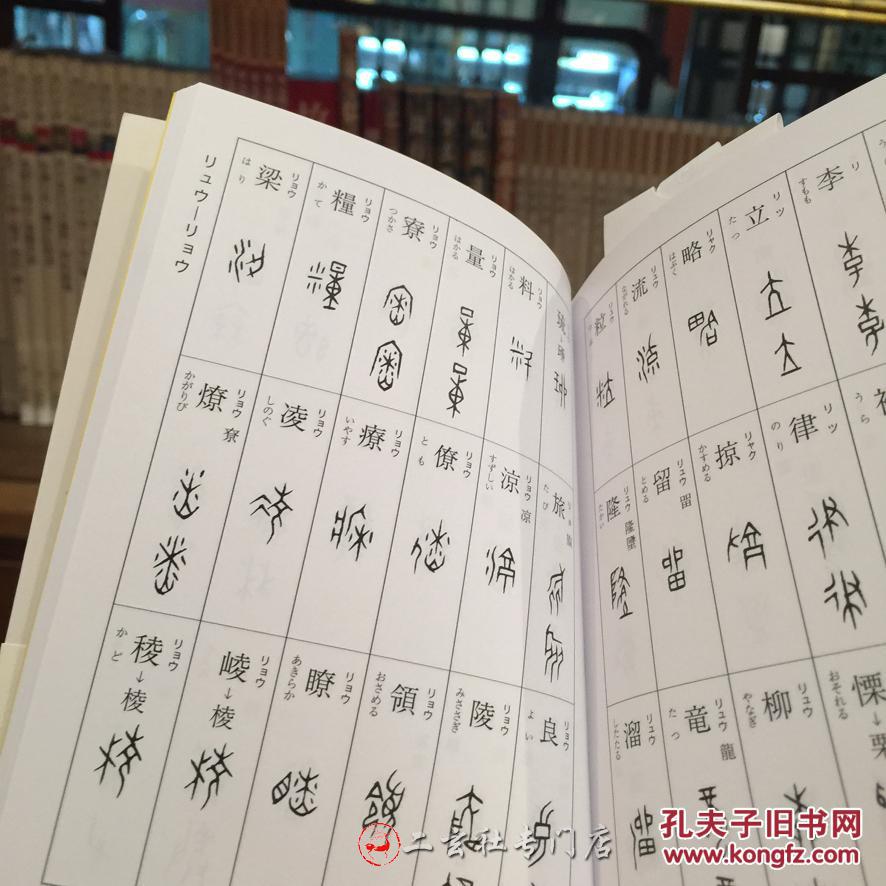 李 リ すもも
立 リツ たつ
略 リャク はぶく
流 リュウ ながれる
粒 リュウ
うら
律 リツ のり
掠 リャク かすめる
留 リュウ 畱 とめる
隆 リュウ たかい
慄→栗 おそれる
柳 リュウ やなぎ
竜 リュウ 龍 たつ
溜 リュウ したたる
料 リョウ はかる
量 リョウ はかる
寮 リョウ つかさ
糧 リョウ かて
梁 リョウ はり
旅 たび
涼 リョウ 凉 すずしい
僚 リョウ とも
療 リョウ いやす
凌 リョウ しのぐ
燎 リョウ 尞 かがりび
良 リョウ よい
陵 リョウ みささぎ
領 リョウ おさめる
瞭 リョウ あきらか
崚→棱 リョウ
稜→棱 リョウ かど
リュウーリョウ
二玄社专门店
孔夫子旧书网
www.kongfz.com